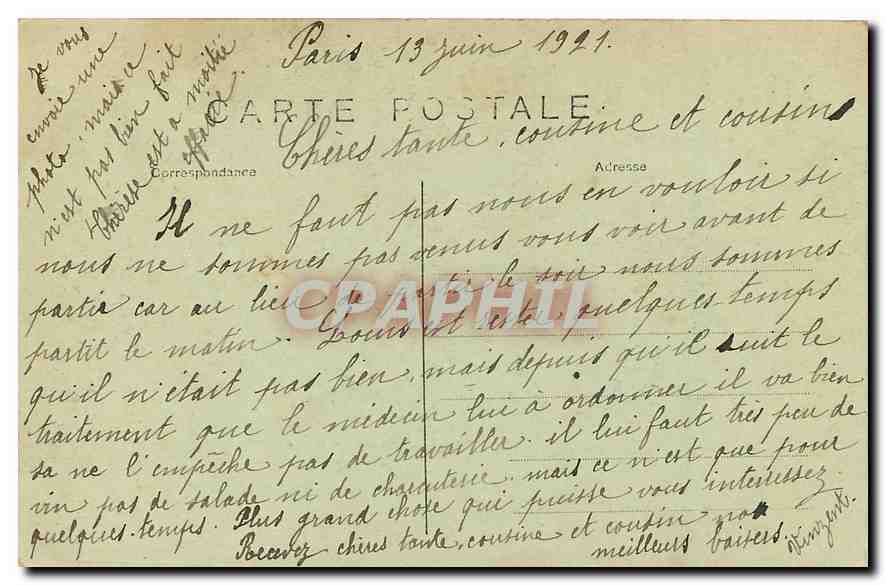 Paris 13 juin 1921.
Je vous
envoie une
photo, mais ce
n'est pas bien fait
Thérèse est a moitié
effacée.
CARTE POSTALE
Chères tante, cousine et cousin
Correspondance
Adresse
Il ne faut pas nous en vouloir si
nous ne sommes pas venus vous voir avant de
partir car au lieu de partir le soir nous sommes
partit le matin. Louis est resté quelques-temps
qu'il n'était pas bien, mais depuis qu'il suit le
traitement que le médecin lui à ordonner il va bien
sa ne l'empêche pas de travailler. il lui faut très peu de
vin pas de salade ni de charcuterie. mais ce n'est que pour
quelques-temps. Plus grand chose qui puisse vous interressez.
Recevez chères tante, cousine et cousin nos
meilleurs baisers.
Vinzent.
CPAPHIL